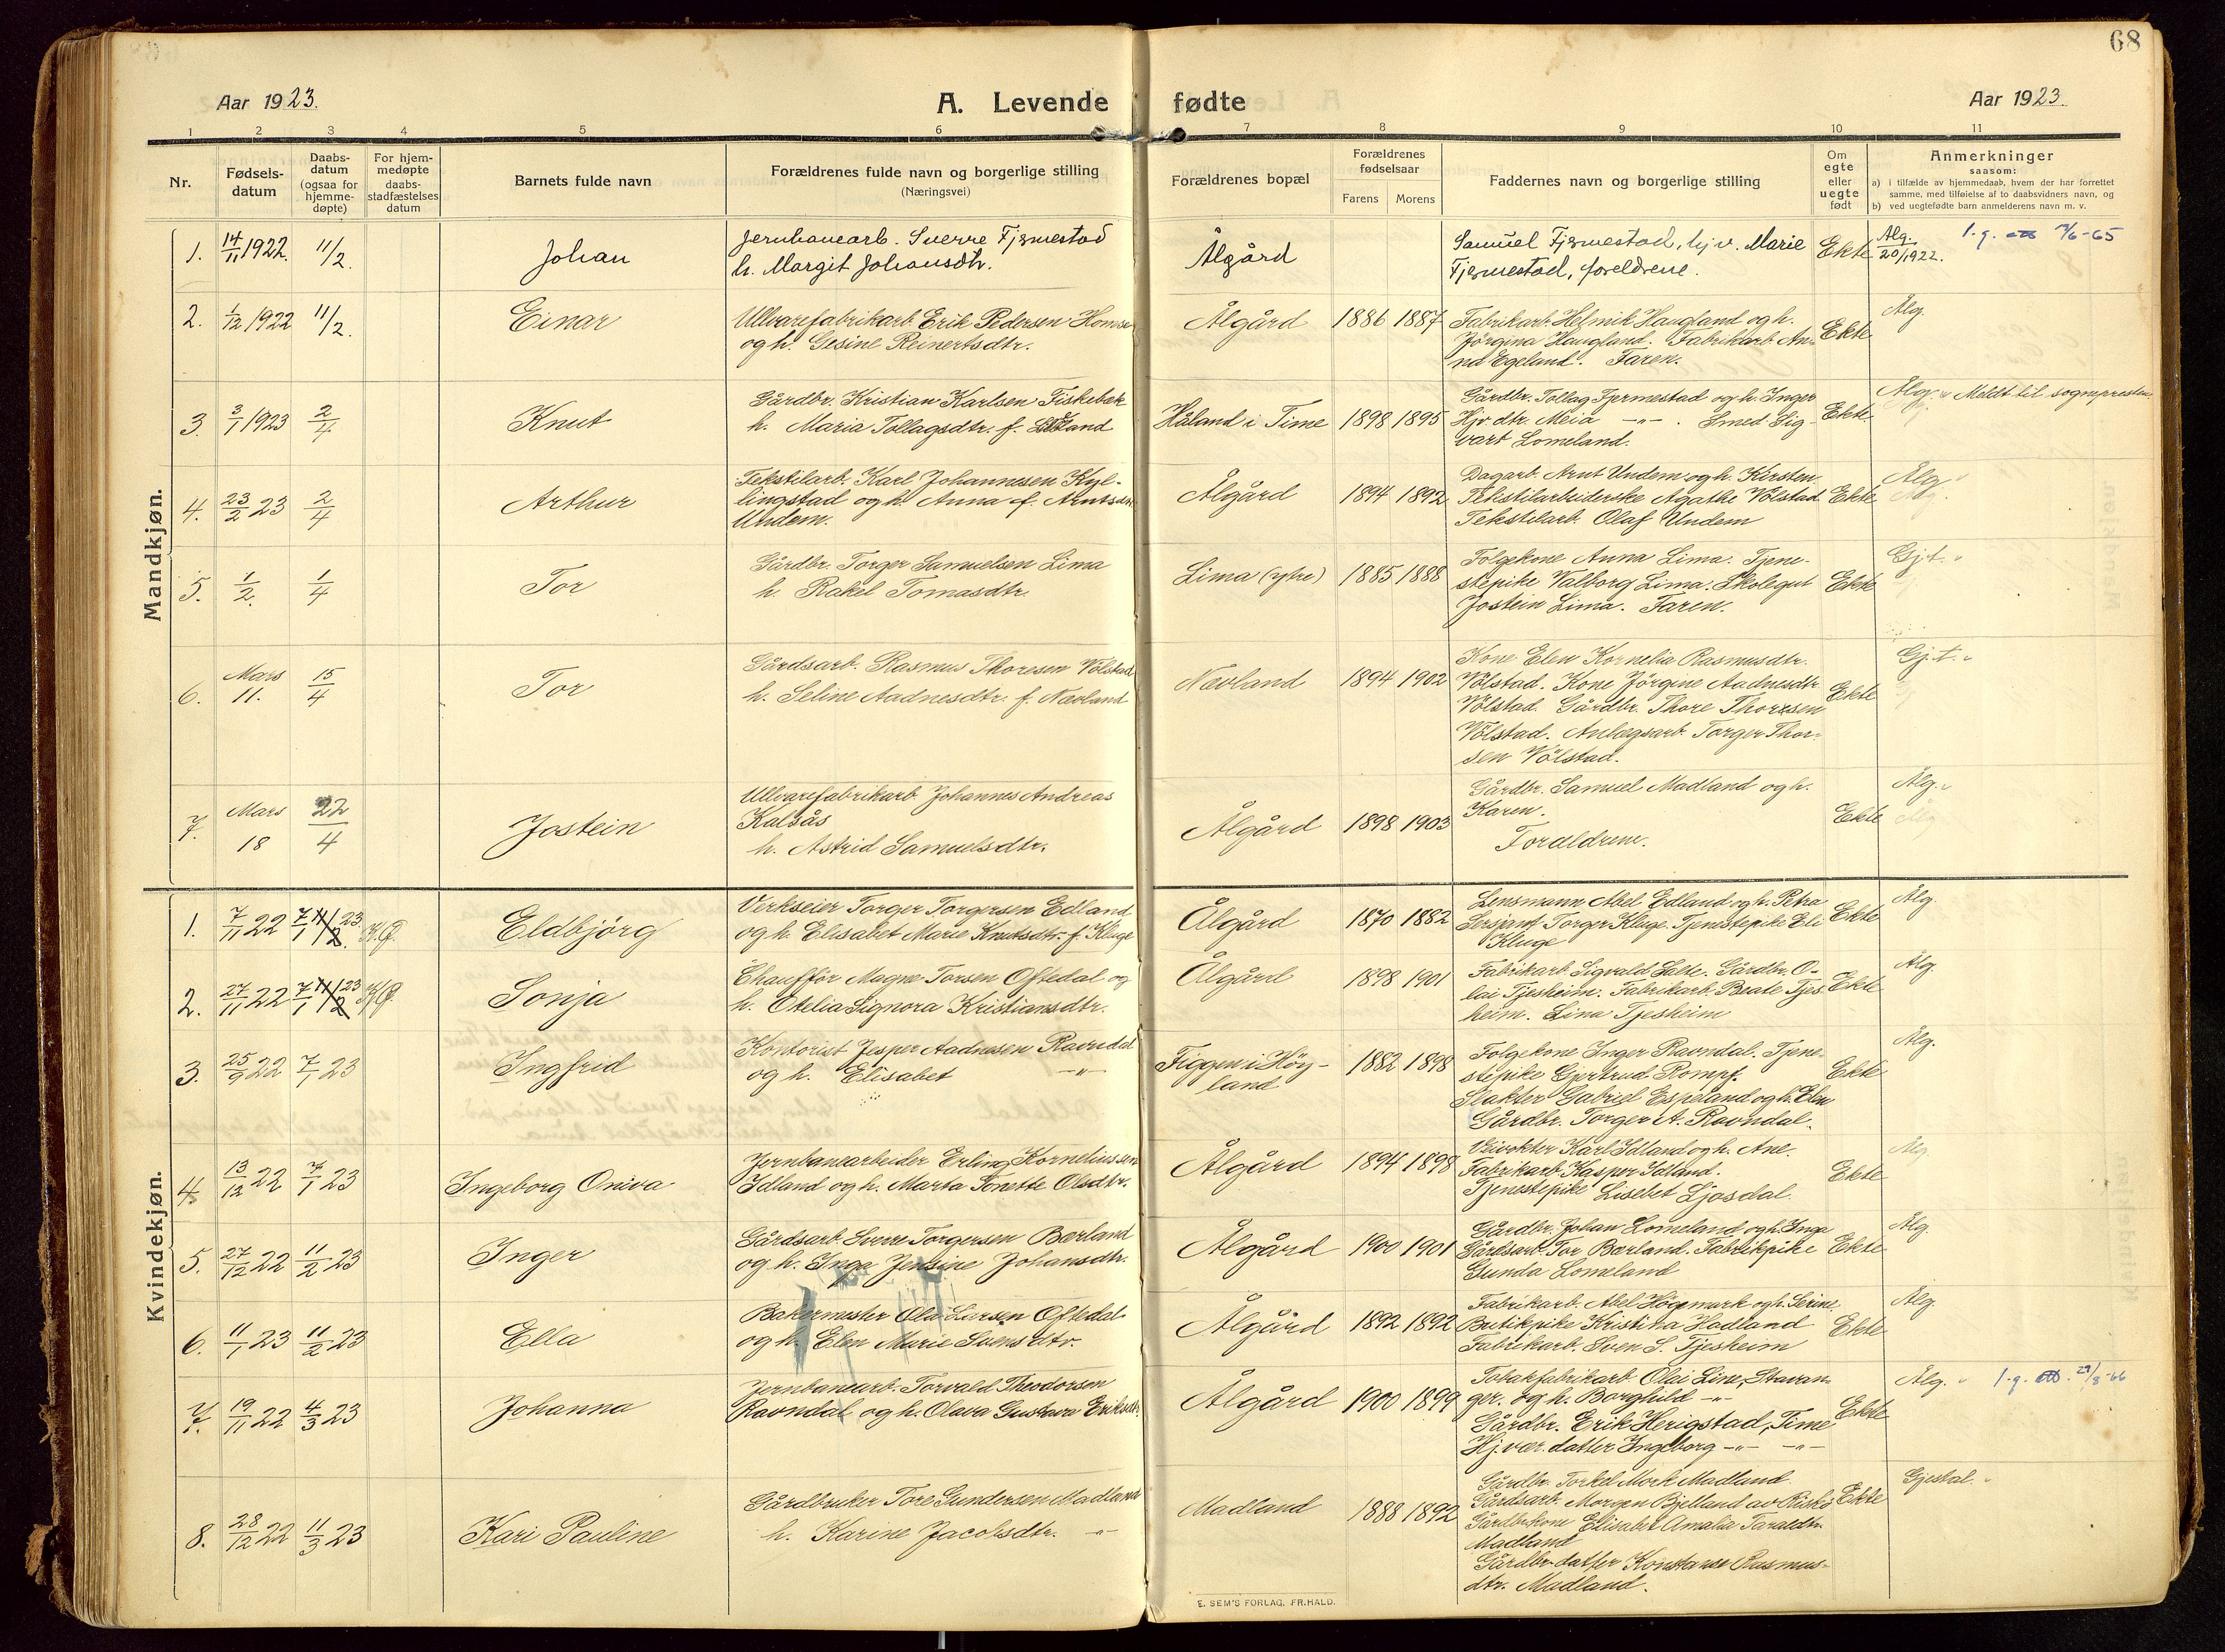 68
Aar 1923.
A. Levende fødte
Aar 1923.
1 2 3 4 5 6 7 8 9 10 11
Nr.
Fødsels-
datum
Daabs-
datum
(ogsaa for
hjemme-
døpte)
For hjem-
medøpte
daabs-
stadfæstelses
datum
Barnets fulde navn
Forældrenes fulde navn og borgerlige stilling
(Næringsvei)
Forældrenes bopæl
Forældrenes
fødselsaar
Farens Morens
Faddernes navn og borgerlige stilling
Om
egte
eller
uegte
født
Anmerkninger
saasom:
a) i tilfælde av hjemmedaab, hvem der har forrettet
samme, med tilføielse af to daabsvidners navn, og
b) ved uegtefødte barn anmelderens navn m. v.
Mandkjøn.
1. 14/11 1922. 11/2. Johan
Jernbanearb. Sverre Fjermestad
h. Margit Johansdtr.
Ålgård
Samuel Fjermestad, hjv. Marie
Fjermestad, foreldrene.
Ekte
Alg.
20/1922.
1.g. 7/6-65
2. 1/12 1922 11/2. Einar
Ullvarefabrikarb. Erik Pedersen
og h. Gesine Reinertsdtr.
Ålgård 1886 1887
Fabrikarb. Helmik Haugland og h.
Jörgina Haugland. Fabrikarb. An-
na Egeland. Faren.
Ekte
Alg.
3. 3/1 1923 2/4 Knut
Gårdbr. Kristian Karlsen Fiskebæk
h. Maria Tollagsdtr. f.
Håland i Time 1898 1895
Gårdbr. Tollag Fjermestad og h. Inger
Hjv. dtr. Meia -"- . Smed Sig-
vart Lomeland.
Ekte
Alg. Meldt til sognepresten
4. 23/2 23 2/4 Arthur
Tekstilarb. Karl Johannesen Kyl-
lingstad og h. Anna f. Arntsdtr.
Undem.
Ålgård 1894 1892
Dagarb. Arnt Undem og h. Kirsten
Tekstilarbeiderske Agathe Völstad
Tekstilarb. Olaf Undem
Ekte
Alg.
5. 1/2. 1/4 Tor
Gårdbr. Torger Samuelsen Lima
h. Rakel Tomasdtr.
Lima (ytre) 1885 1888
Folgekone Anna Lima. Tjene-
stepike Valborg Lima. Skolegut
Jostein Lima. Faren.
Ekte
Gj.t.
6. Mars 11. 15/4 Tor
Gårdsarb. Rasmus Thoresen Völstad
h. Seline Aadnesdtr. f. Nævland
Nevland 1894 1902
Kone Elen Kornelia Rasmusdtr.
Völstad. Kone Jörgine Aadnesdtr.
Völstad. Gårdbr. Thore Thoresen
Völstad. Anlægsarb. Torger Thor-
sen Völstad.
Ekte
Gj.t.
7. Mars 18 22/4 Jostein
Ullvarefabrikarb. Johannes Andreas
Kalsås
h. Astrid Samuelsdtr.
Ålgård 1898 1903
Gårdbr. Samuel Madland og h.
Karen.
Foraldrene.
Ekte
Alg.
Kvindekjøn.
1. 7/11 22 7/1 23 K.G. Eldbjörg
Verkseier Torger Torgersen Edland
og h. Elisabet Marie Knutsdtr. f. Kluge
Ålgård 1870 1882
Lensmann Abel Edland og h. Petra
Sersjant Torger Kluge. Tjenestepike Eli
Kluge
Ekte
Alg.
2. 27/11 22 7/1 23 K.G. Sonja
Chaufför Magne Torsen Oftedal og
h. Otelia Signora Kristiansdtr.
Ålgård 1898 1901
Fabrikarb. Sigvald Salte. Gårdbr. O-
lai Tjesheim. Fabrikarb. Beate Tjes-
heim. Lina Tjesheim
Ekte
Alg.
3. 25/9 22 7/1 23 Ingfrid
Kontorist Jesper Aadnesen Ravndal
og h. Elisabet -"-
Figgen i Höy-
land
1882 1898
Folgekone Inger Ravndal. Tjene-
stepike Gjertrud Rompf.
Slakter Gabriel Espeland og h. Elen
Gårdbr. Torger A. Ravndal.
Ekte
Alg.
4. 13/12 22 7/1 23 Ingeborg Oniva
Jernbanearbeider Erling Korneliussen
Idland og h. Marta Tonette Olsdtr.
Ålgård 1894 1898
Veivokter Karl Idland og h. Ane.
Fabrikarb. Kasper Idland.
Tjenestepike Lisebet Ljosdal.
Ekte
Alg.
5. 27/12 22 11/2 23 Inger
Gårdsarb. Sverre Torgersen Bærland
og h. Inga Jensine Johansdtr.
Ålgård 1900 1901
Gårdbr. Johan Lomeland og h. Inga
Gårdsarb. Tor Bærland. Fabrikpike
Gunda Lomeland
Ekte
Alg.
6. 11/1 23 11/2 23 Ella
Bakermester Ola Larsen Oftedal
og h. Elen Marie Svensdtr.
Ålgård 1892 1892
Fabrikarb. Abel Högemark og h. Serine.
Butikpike Kristina Hadland
Fabrikarb. Sven S. Tjesheim
Ekte
Alg.
7. 19/11 22 4/3 23 Johanna
Jernbanearb. Torvald Theodorsen
Ravndal og h. Olava Gustava Eriksdtr.
Ålgård 1900 1899
Tobakfabrikarb. Olai Lin, Stavan-
ger. og h. Borghild -"-
Gårdbr. Erik Herigstad, Time
Hj.vær. datter Ingeborg -"- -"-
Ekte
Alg. 1.g. 29/8-66
8. 28/12 22 11/3 23 Kari Pauline
Gårdbruker Tore Gundersen Madland
h. Karine Jacobsdtr. -"-
Madland 1888 1892
Gårdbr. Torkel Mork Madland
Gårdsarb. Morgen Bjelland av
Gårdbr.kone Elisabet Amalia Taraldtr.
Madland
Gårdbr.datter Konstanse Rasmus-
dtr. Madland.
Ekte
Gjestal.
E. SEM'S FORLAG, FR.HALD.